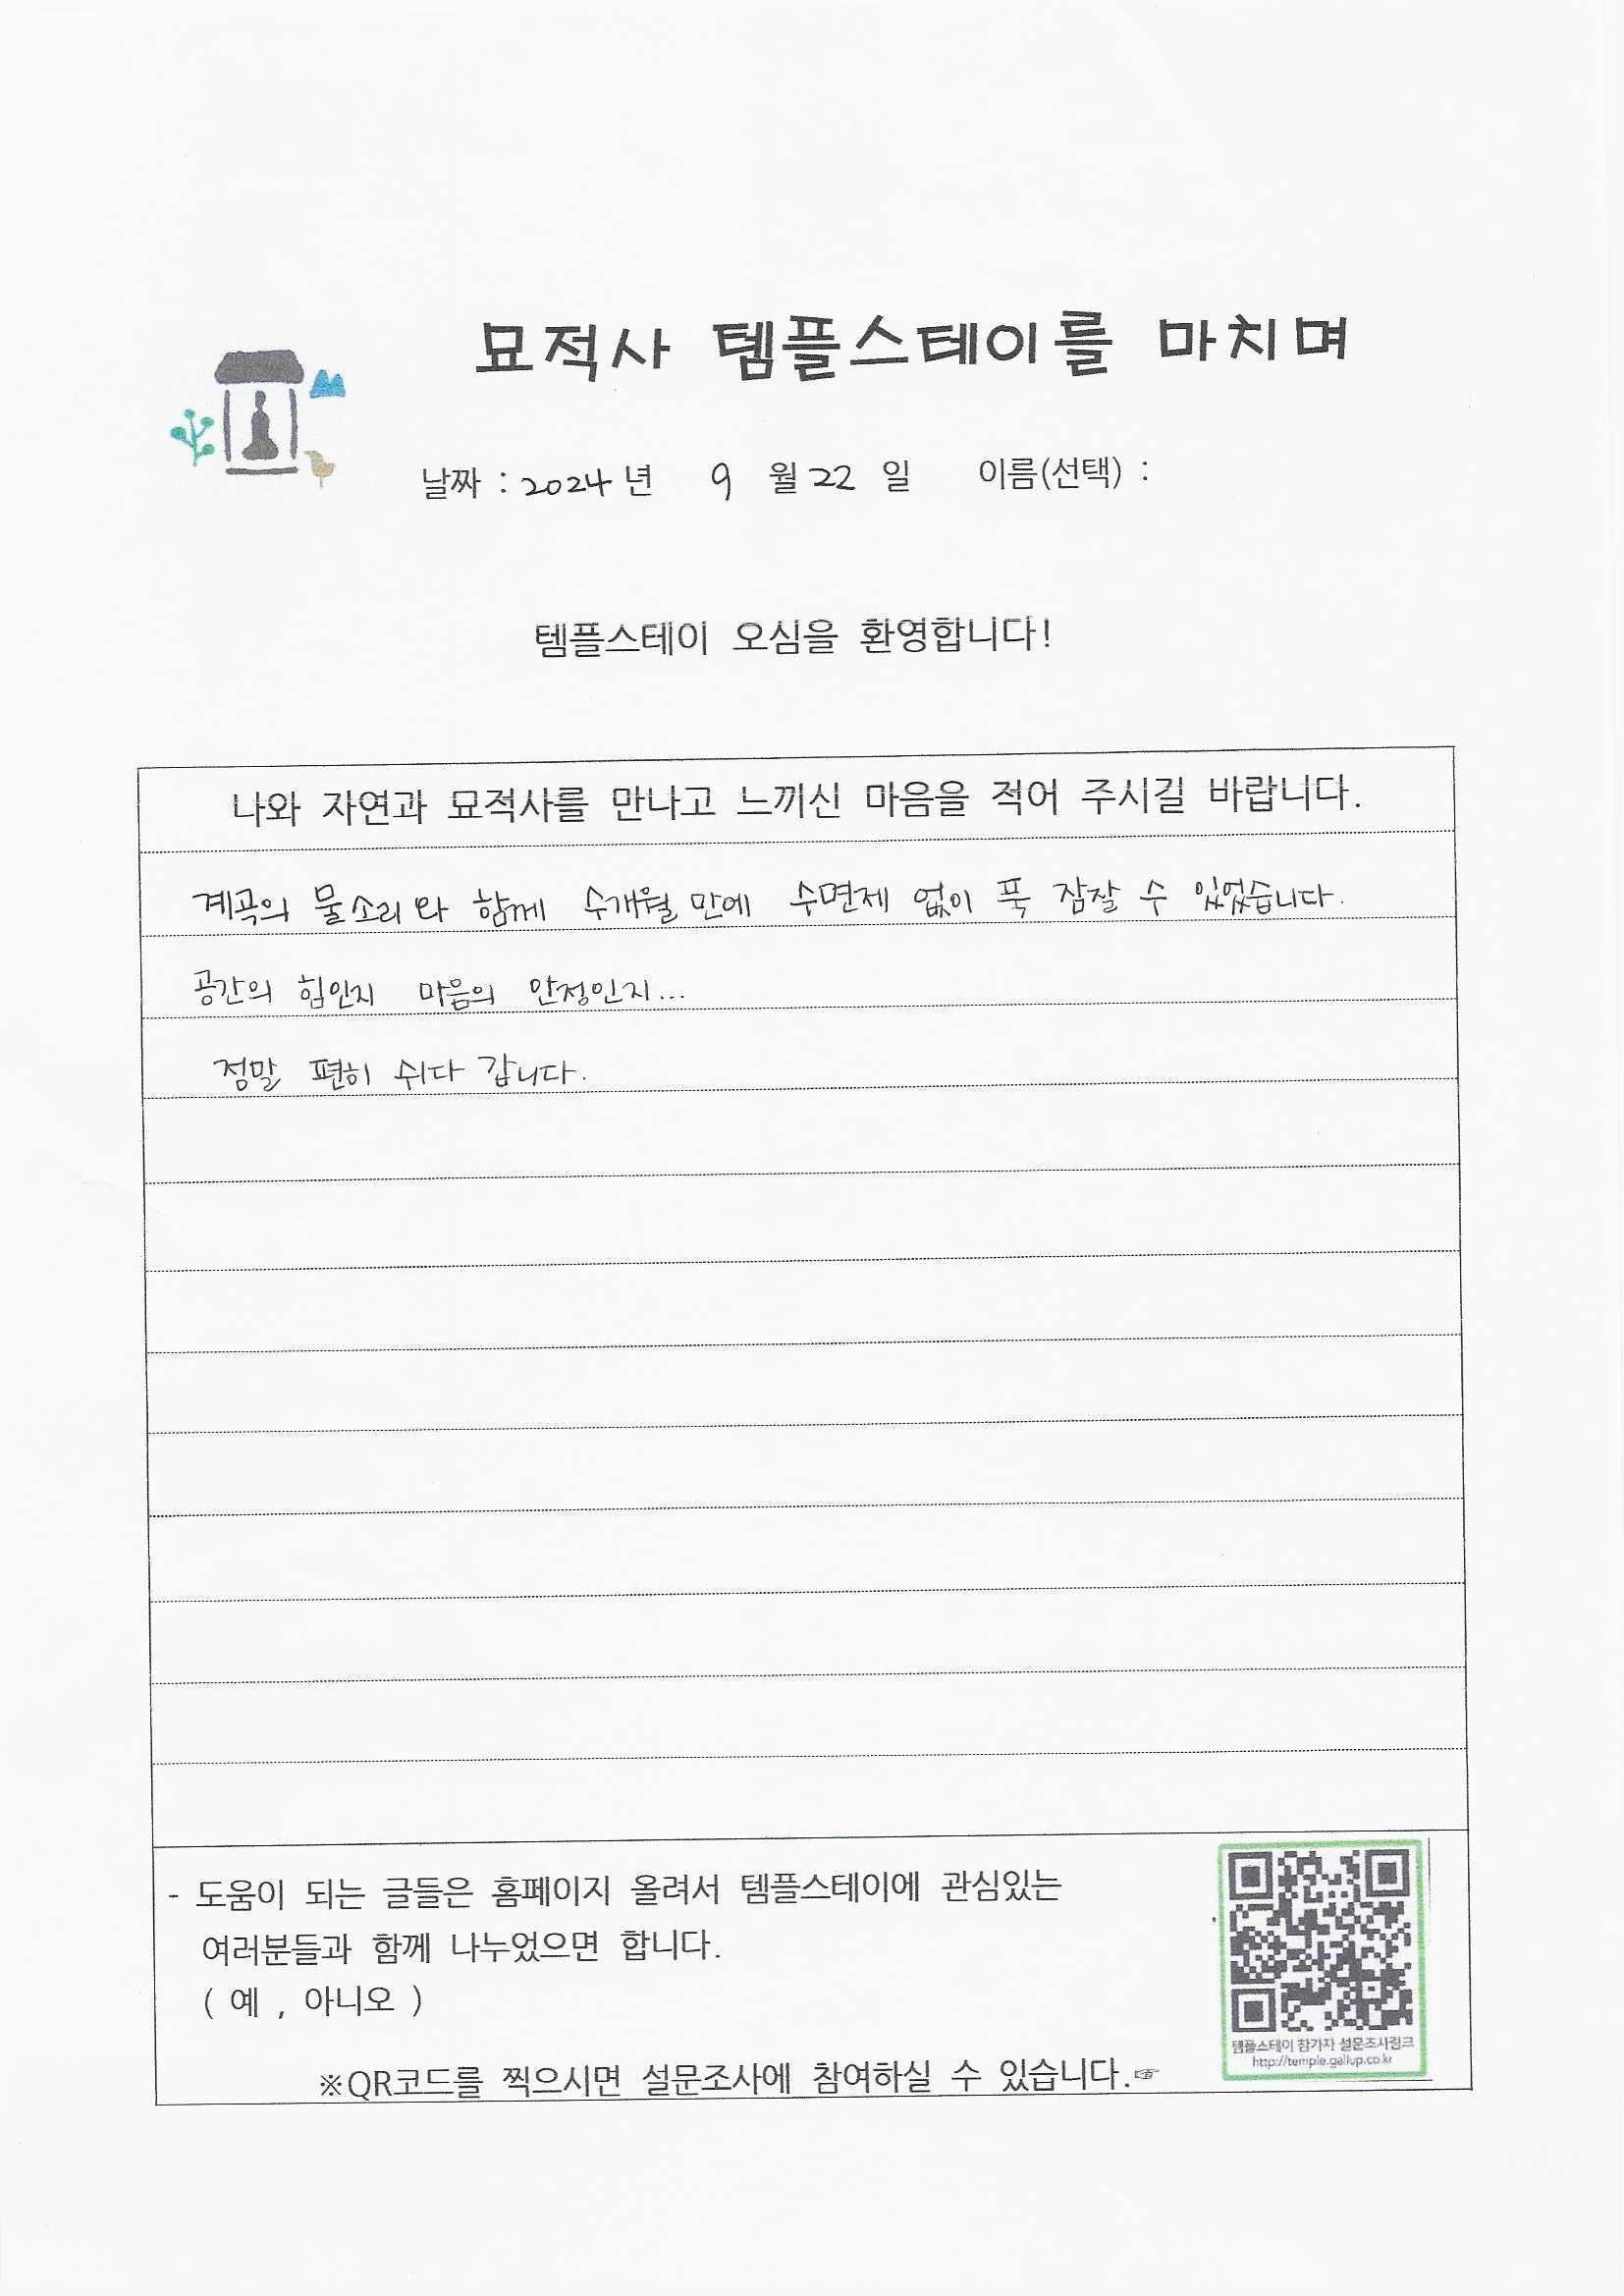 묘적사 템플스테이를 마치며
날짜 : 2024 년 9 월 22 일 이름(선택) :
템플스테이 오심을 환영합니다!
나와 자연과 묘적사를 만나고 느끼신 마음을 적어 주시길 바랍니다.
계곡의 물소리와 함께 수개월 만에 수면제 없이 푹 잠잘 수 있었습니다.
공간의 힘인지 마음의 안정인지...
정말 편히 쉬다 갑니다.
- 도움이 되는 글들은 홈페이지 올려서 템플스테이에 관심있는
여러분들과 함께 나누었으면 합니다.
( 예 , 아니오 )
템플스테이 참가자 설문조사링크
http://temple.gallup.co.kr
※QR코드를 찍으시면 설문조사에 참여하실 수 있습니다.☞